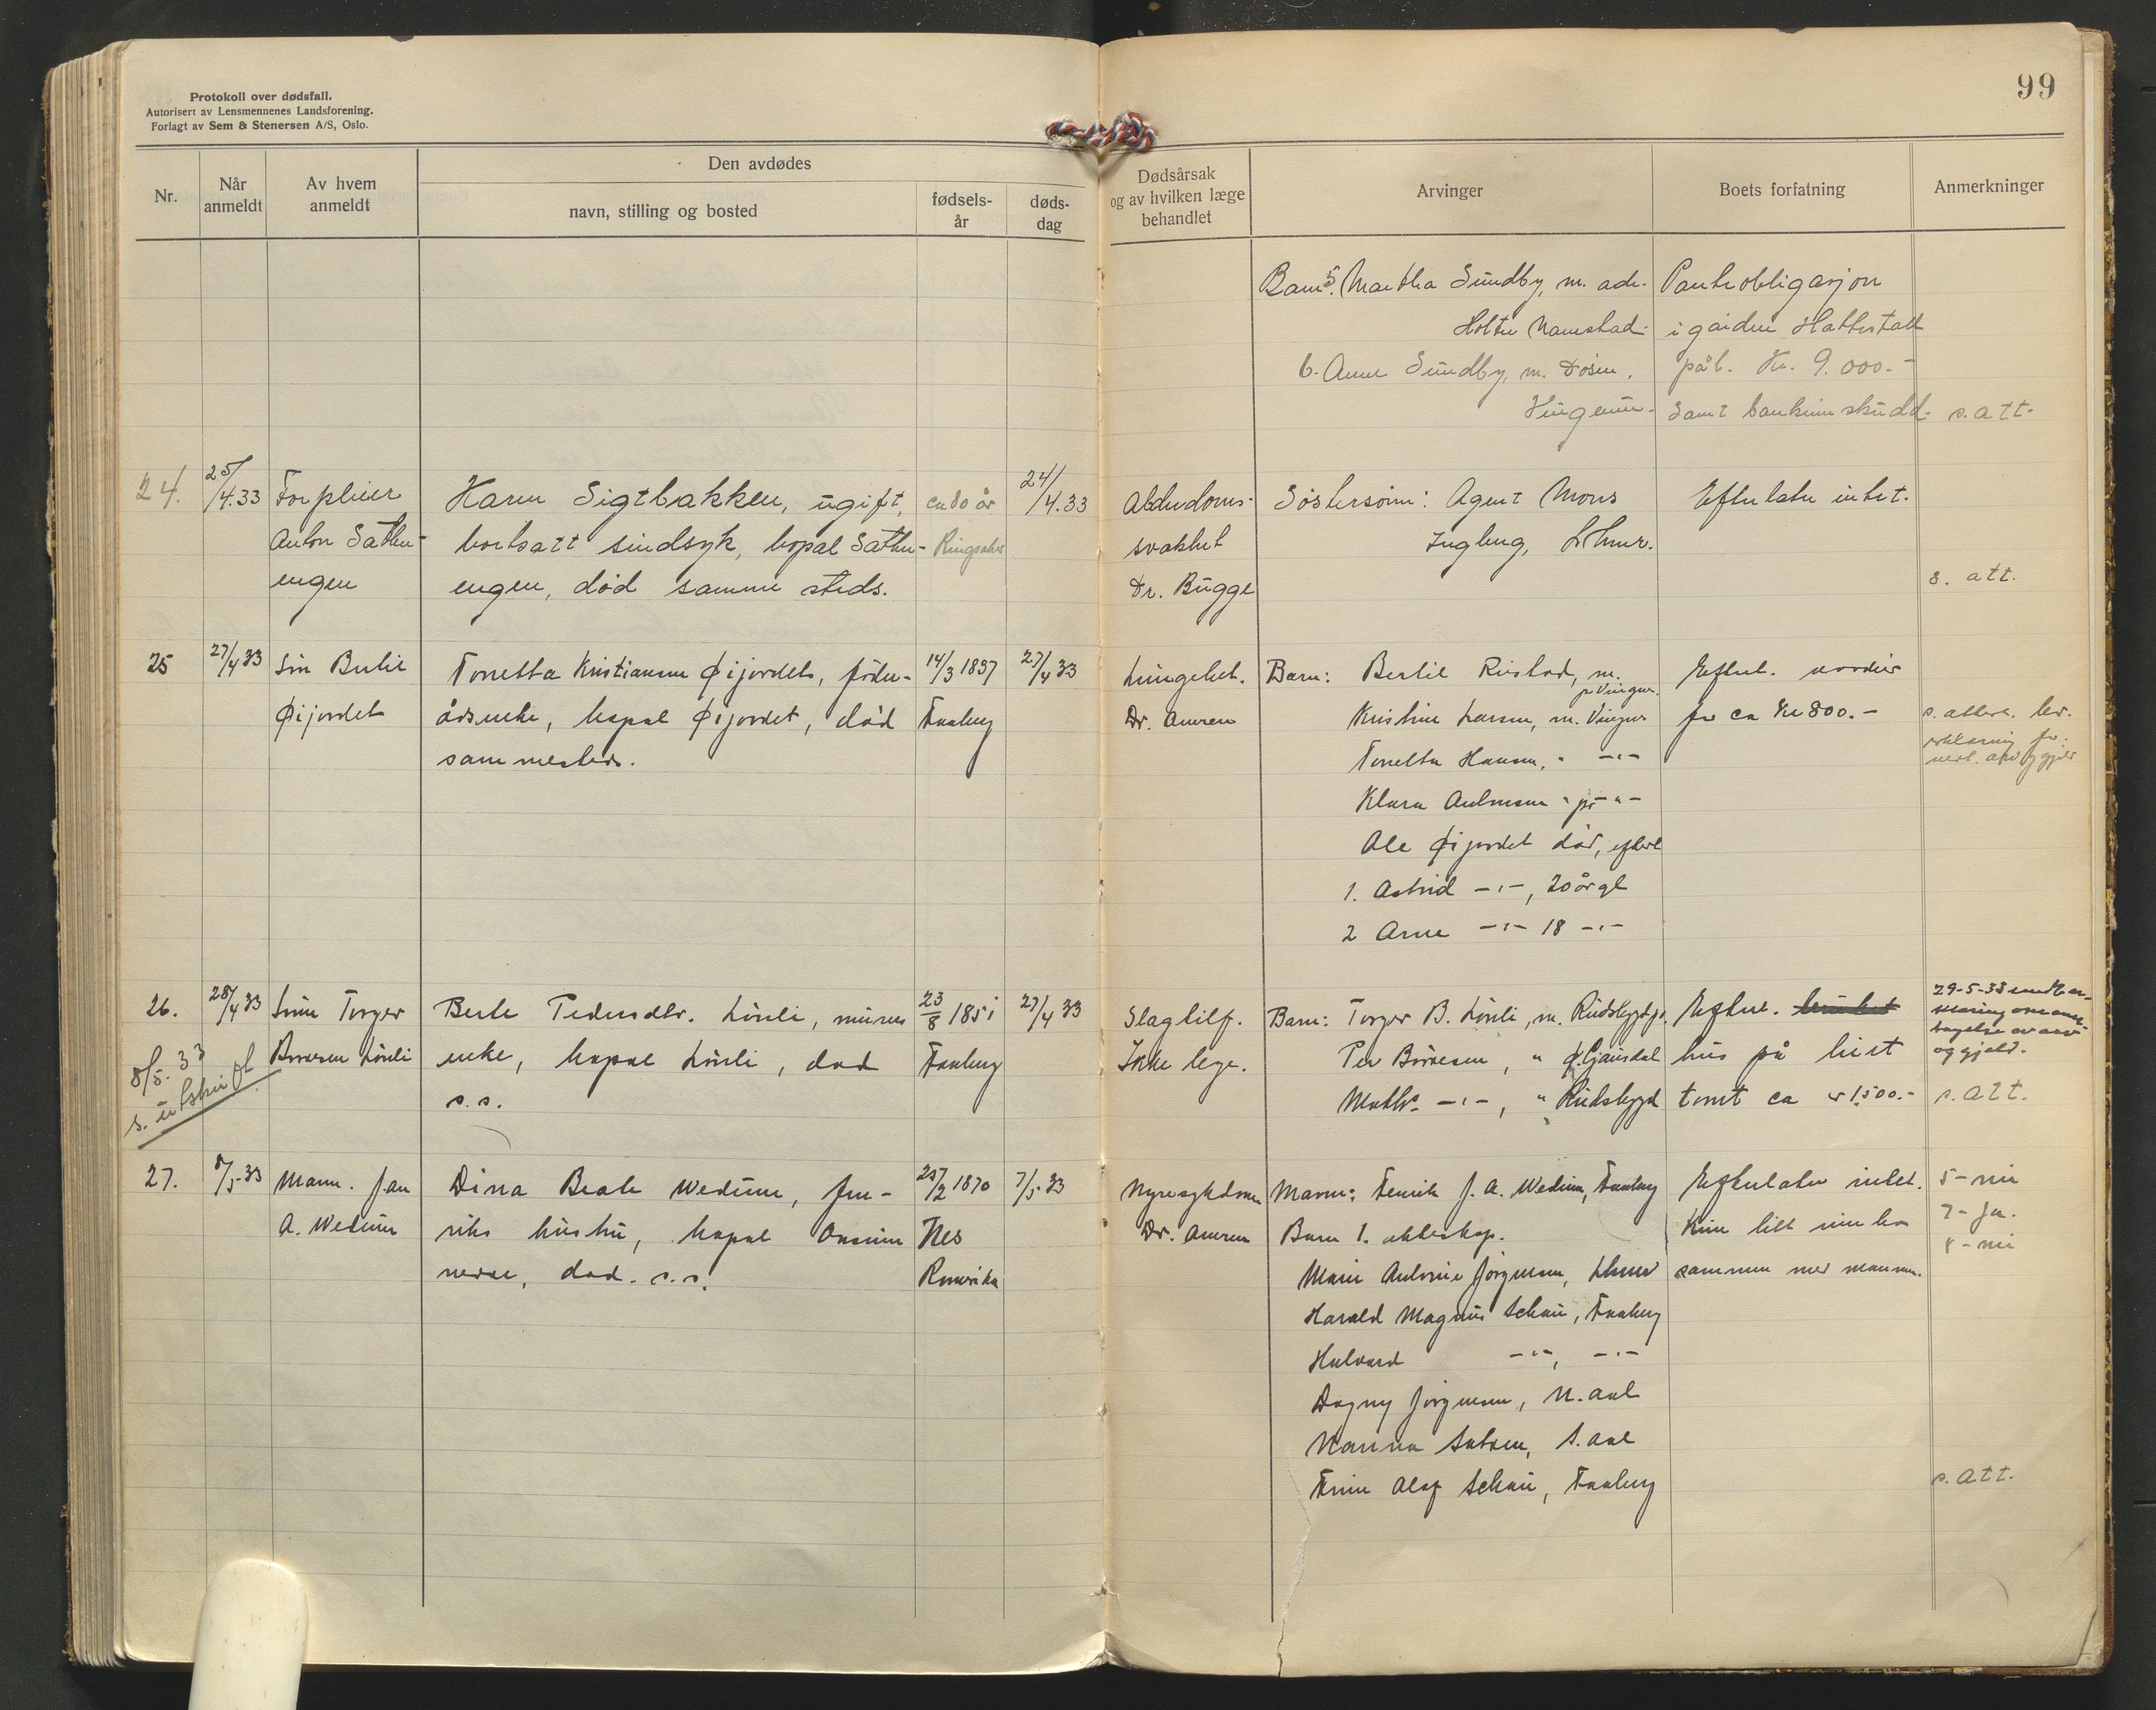 Protokoll over dødsfall.
Autorisert av Lensmennenes Landsforening.
Forlagt av Sem & Stenersen A/S, Oslo.
99
Nr.
Når anmeldt
Av hvem anmeldt
Den avdødes
navn, stilling og bosted
fødsels-år
døds-dag
Dødsårsak og av hvilken læge behandlet
Arvinger
Boets forfatning
Anmerkninger
Barn 5. Martha Sundby, m. adr.
Holter Nannestad.
6. Anne Sundby, m. Døsen,
Pantobligasjon
i gården Hattestad
på l. Kr. 9.000.-
samt bankinnskudd.
s. att.
24.
25/4.33
Forpleier
Anton Sæther-
engen
Karen Sigtbakken, ugift,
bortsatt sindsyk, bopæl Sæther-
engen, død samme steds.
ca 80 år
Ringsaker
24/4.33
Alderdoms-
svakhet
Dr. Bugge
Søstersønn: Agent Mons
Ingberg, L.hmr.
Efterlater intet.
s. att.
25
27/4 33
Bertil
Øijordet
Tonetta Kristiansen Øijordet, føder-
ådsenke, bopæl Øijordet, død
sammesteds.
14/3 1837
Faaberg
27/4 33
Lungebet.
Dr. Amren
Barn: Bertil Rustad, m.
Kristine Larsen, m. Vingar
Tonetta Hansen, " -"-
Klara " på -"-
Ole Øijordet død, efterl
1. Astrid -"-, 20 år gl
2 Arne -"- 18 -"-
Efterl. verdier
for ca Kr 800.-
s. attest.
erklæring
26.
28/4 33
8/5.33
s. utskrift
Sønn Torger
Børresen Lønli
Berte Pedersdtr. Lønli, murer
enke, bopæl Lønli, død
s.s.
23/8 1851
Faaberg
27/4 33
Slagtilf.
Ikke lege.
Barn: Torger B. Lønli, m. Rudsbygd
Per Børresen, "
Maths. -"-, " Rudsbygd
Efterl.
hus på leiet
tomt ca kr 1500.-
29-5-33 sendt er-
klæring om over-
tagelse av arv
og gjeld.
s. att.
27.
8/5-33
Mann. Jan
A. Wedum
Dina Beate Wedum, fen-
riks hustru, bopæl
nerse, død. s.s.
25/2 1870
Nes
Romerike
7/5-33
Nyresykdom
Dr. Amren
Mann: Fenrik J. A. Wedum, Faaberg
Barn 1. ekteskap.
Marie Antonie Jørgensen, Lhmr
Harald Magnus Schau, Faaberg
Halvard -"-, -"-
Dagny Jørgensen, N. Aal
Nanna
Finn Olaf Schau, Faaberg
Efterlater intet.
Kun litt innbo
sammen med mannen.
5 - nei
7 - ja.
8 - nei
s. att.